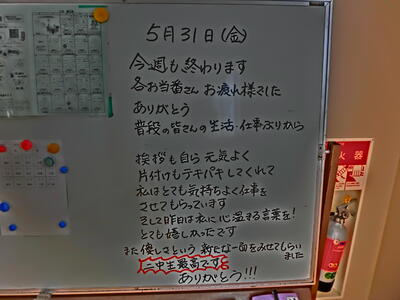 5月31日(金)
今週も終わります
各お当番さん お疲れ様でした
ありがとう
普段の皆さんの生活・仕事ぶりから
挨拶も自ら元気よく
片付けもテキパキしてくれて
私はとても気持ちよく仕事を
させてもらっています
そして昨日は私に心温まる言葉を!
とても嬉しかったです
また優しさという 新たな一面をみせてもらい
ました
二中生最高です
ありがとう!!!
火器